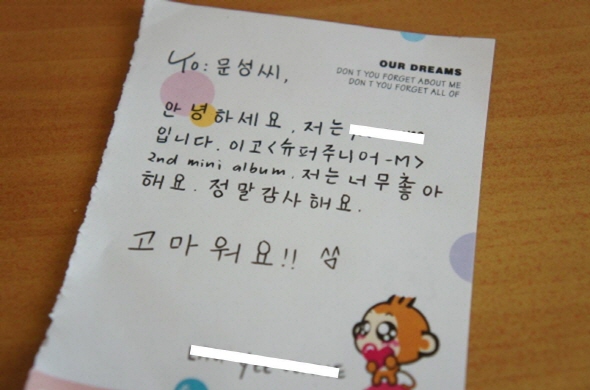 To: 문성씨,
OUR DREAMS
DON T YOU FORGET ABOUT ME
DON T YOU FORGET ALL OF
안녕하세요. 저는
입니다. 이고<슈퍼주니어-M>
2nd mini album. 저는 너무 좋아
해요. 정말 감사해요.
고마워요!!